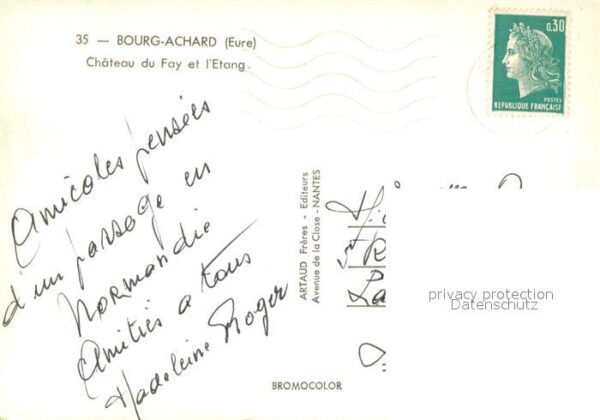 35 — BOURG-ACHARD (Eure)
Château du Fay et l'Etang.
0,30
POSTES
REPUBLIQUE FRANÇAISE
Amicales pensées
d'un passage en
Normandie
Amitiés a tous
Madeleine Roger
ARTAUD Frères - Editeurs
Avenue de la Close - NANTES
privacy protection
Datenschutz
BROMOCOLOR